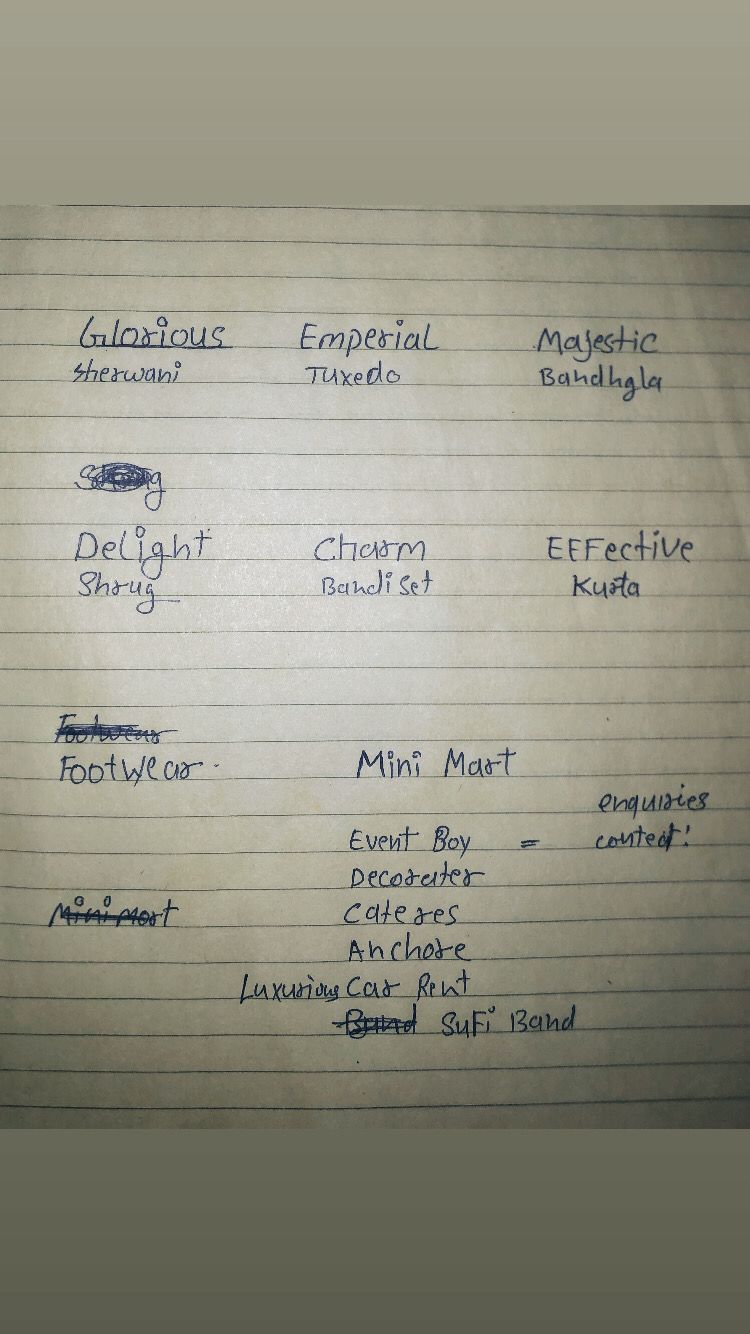 Glorious Emperial Majestic
Sherwani Tuxedo Bandhgla
Delight Charm EFFective
Shrug Bandi Set Kurta
Footwear
FootWear Mini Mart
enquiries
Event Boy = contect!
Decorater
Mini Mart Cateres
Anchore
Luxurious Car Rent
Band SuFi Band